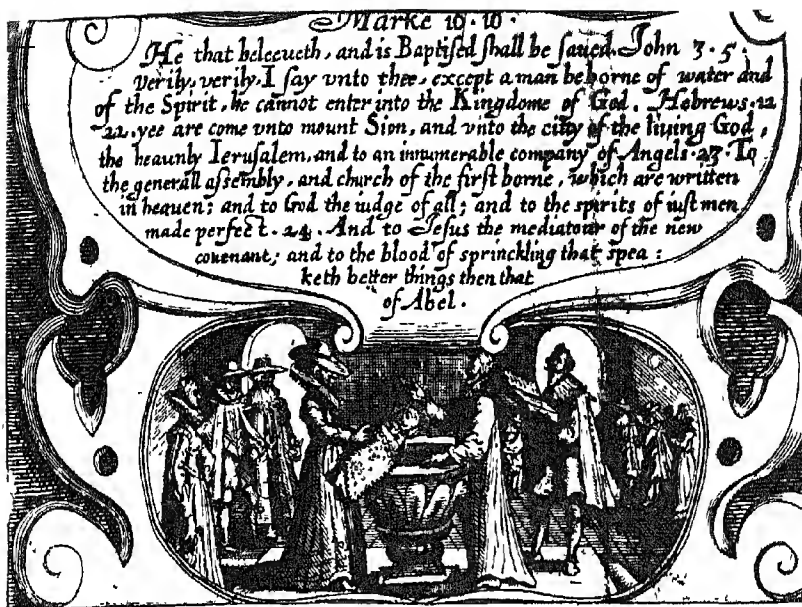 Marke 16. 16.
He that beleeueth, and is Baptised shall be saued. John 3. 5.
verily, verily, I say vnto thee, except a man be borne of water and
of the Spirit, he cannot enter into the Kingdome of God. Hebrews. 12
22. yee are come vnto mount Sion, and vnto the city of the liuing God,
the heaunly Ierusalem, and to an innumerable company of Angels. 23. To
the generall assembly, and church of the first borne, which are written
in heauen; and to God the iudge of all; and to the spirits of iust men
made perfect. 24. And to Jesus the mediatour of the new
couenant; and to the blood of sprinckling that spea :
keth better things then that
of Abel.